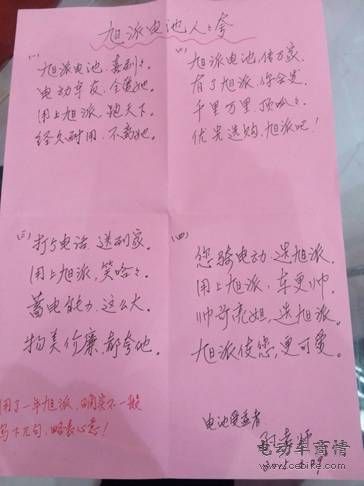 旭派电池人人夸
(一)
旭派电池,喜刷刷。
电动车友,全爱他。
用上旭派,跑天下。
经久耐用,不离她。
(二)
旭派电池,传万家。
有了旭派,你会爱。
千里万里,顶呱呱。
优先选购,旭派吧!
(三)
打个电话 送到家。
用上旭派,笑哈哈。
蓄电能力,这么大。
物美价廉,都夸她。
(四)
您骑电动 选旭派。
用上旭派,车更帅。
帅哥亮姐,选旭派。
旭派使您,更可爱。
用了一年旭派,确实不一般
写下几句,略表心意!
电池受益者
电动车商情
www.cebike.com